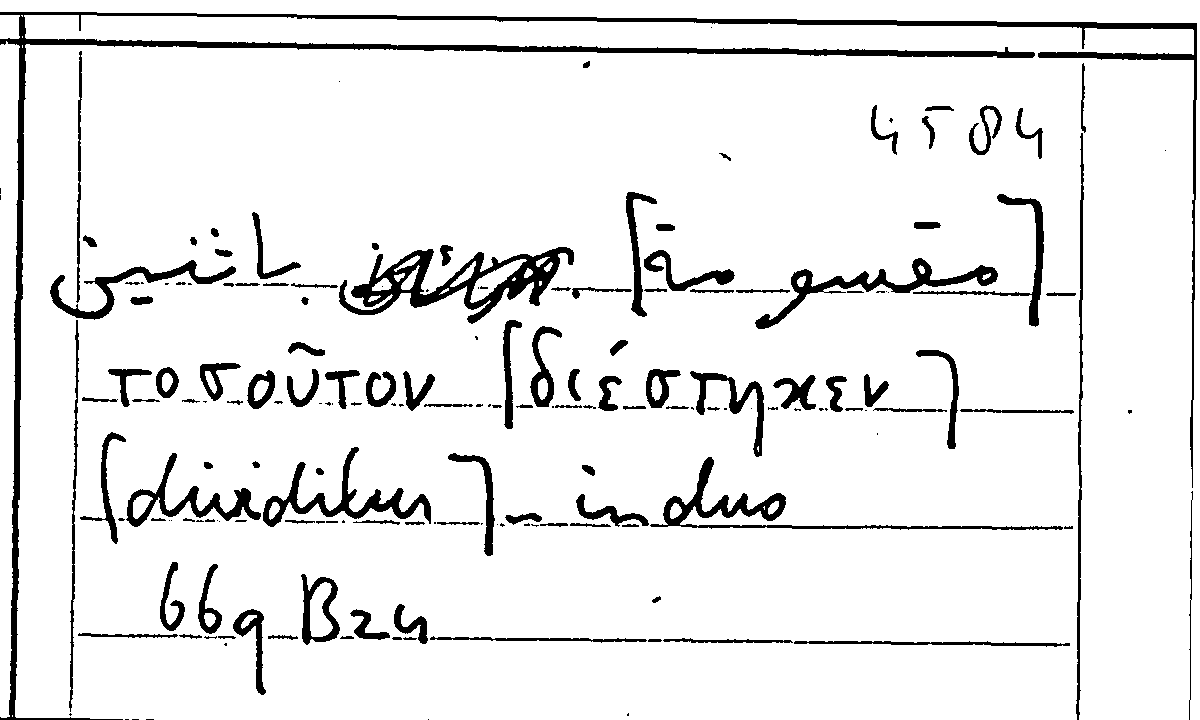 4584
باثنين
τοσοῦτον [διέστηκεν]
[dividitur] – in duo
669 B24